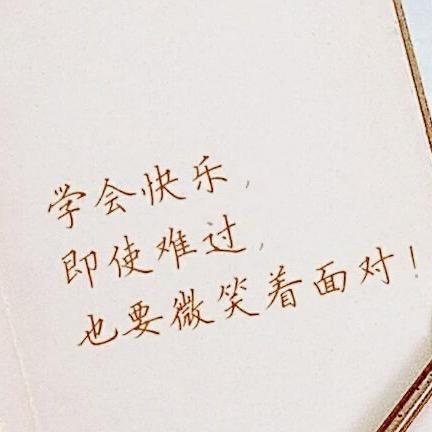 学会快乐，
即使难过，
也要微笑着面对！